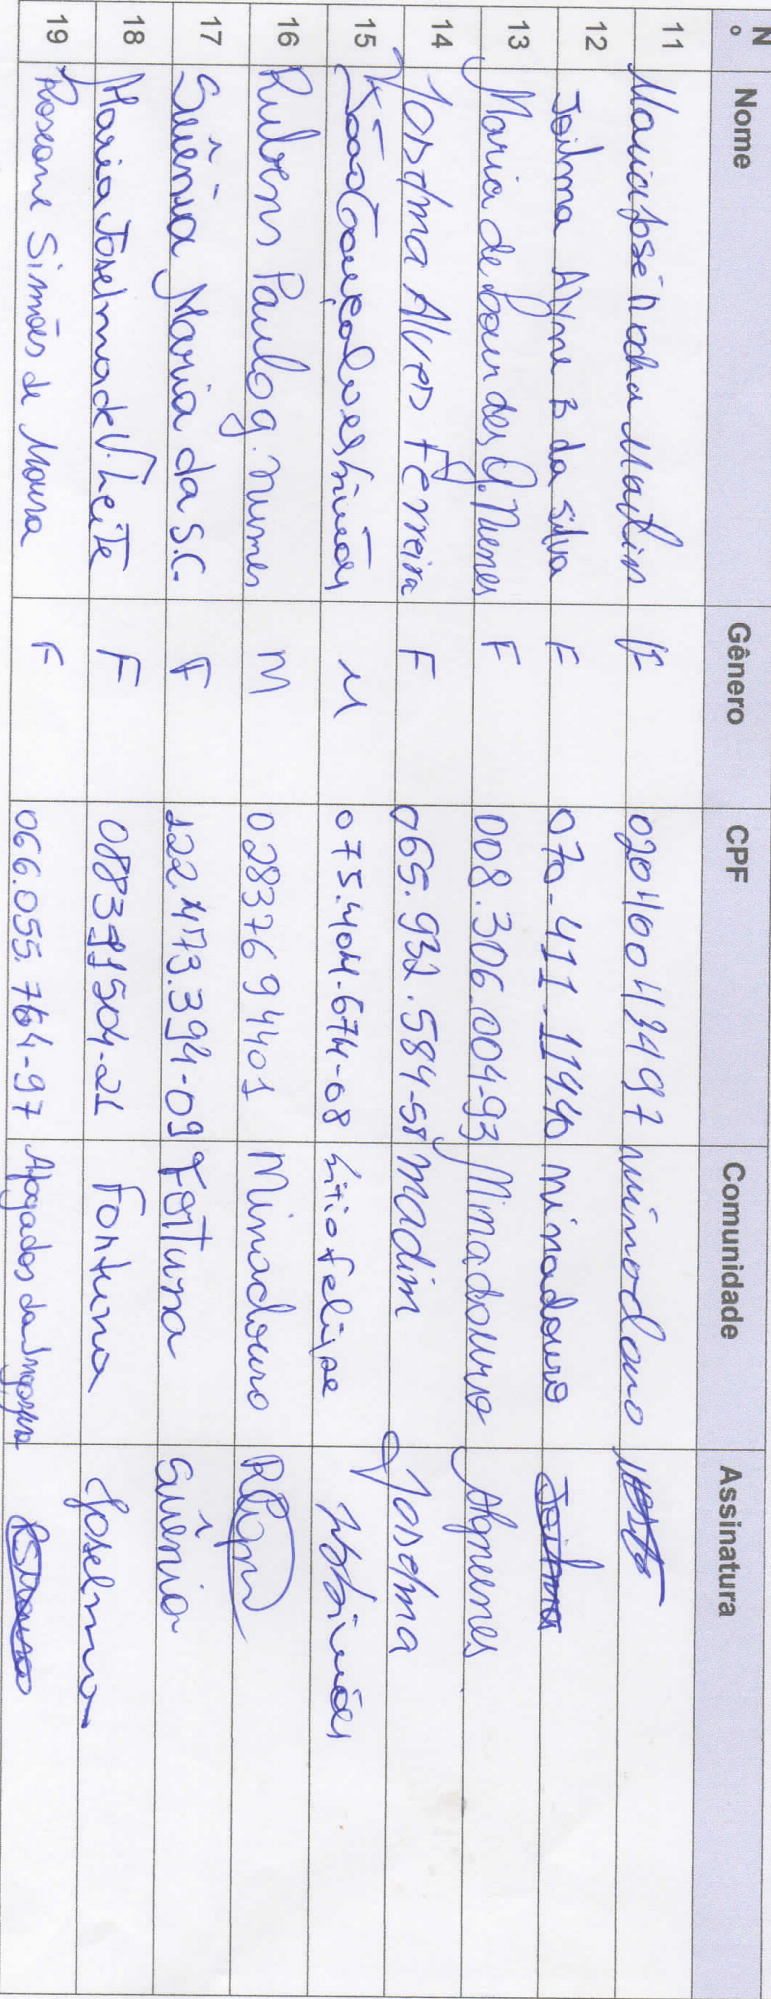 Nº Nome Gênero CPF Comunidade Assinatura
11 Maria José Rocha Martin F minadouro
12 Joilma Alyne B da Silva F 070-411-11440 minadouro Joilma
13 Maria de Lourdes Q. Nunes F 008.306.004-93 Minadouro
14 Joselma Alves Ferreira F 065.932.584-58 madim Joselma
15 João Gonçalves Simões M 075.404.674-08 Sitio Felipe
16 Rubens Paulo g. nunes M 02837694401 Minadouro
17 Suênia Maria da S.C. F 122.473.394-09 Fortuna Suênia
18 Maria Joselma de V. Leite F Fortuna Joselma
19 Roseane Simões de Moura F 066.055.764-97 Afogados da Ingazeira